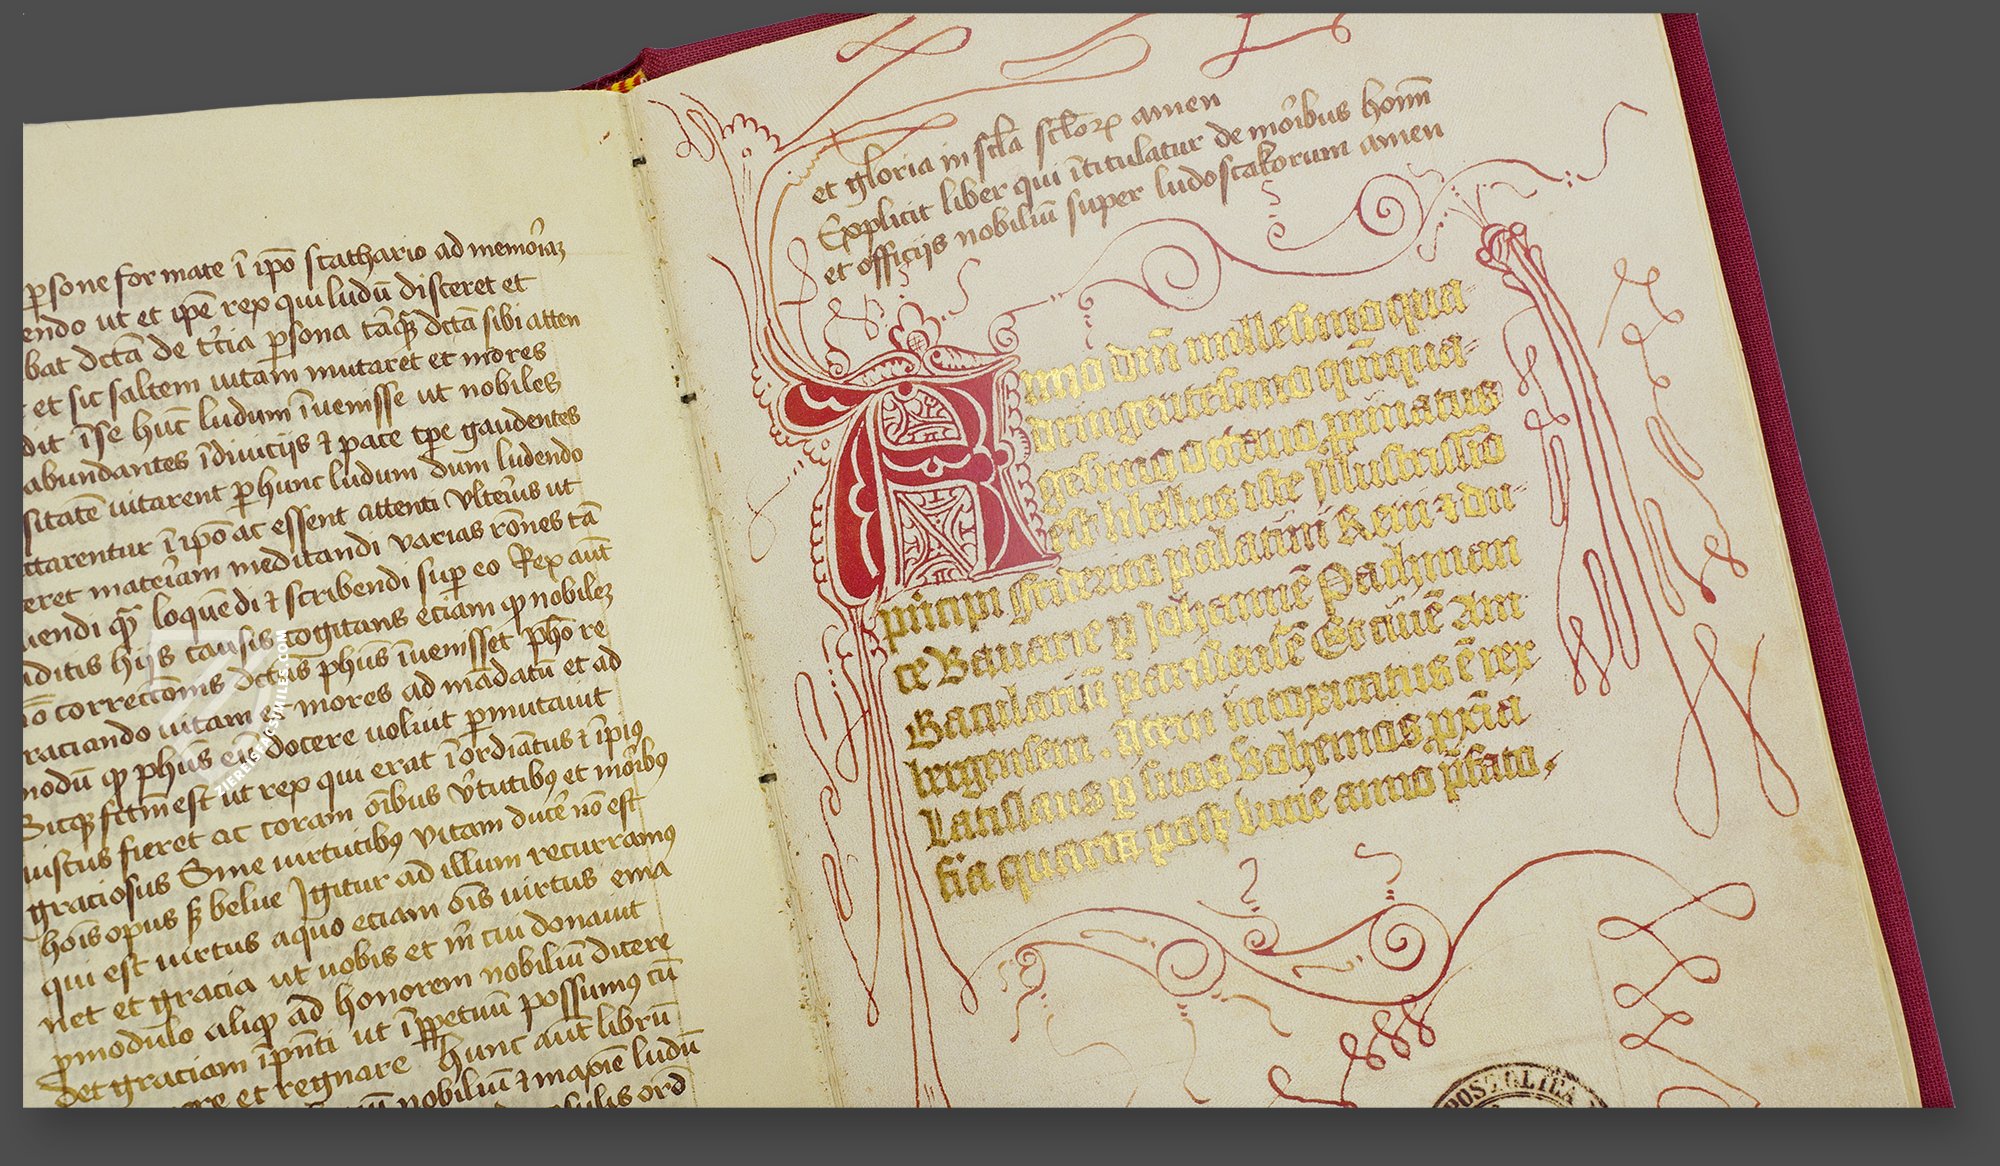 ꝑsone formate ī ip̄o scathario ad memoꝛ̄iaꝫ
endo ut et ip̄e rex qui ludū disceret et
bat dc̄tā de tc̄ia ꝑsona tāqꝫ dc̄tā sibi atten
et sic saltem uitam mutaret et mores
dit īse hūc ludum īuenisse ut nobiles
abundantes ī diuicijs ⁊ pace tꝑe gaudentes
sitatē uitarent ꝑ hunc ludum dum ludendo
ctarentur ī ip̄o ac essent attenti vlteriꝰ ut
eret materiam meditandi varias rōnes tā
uendi qꝫ loquēdi ⁊ scribendi suꝑ eo Rex aūt
ditis hijs causis cogitans eciam ꝙ nobileꝫ
correctōnis dc̄tꝰ phūs īuenisset ꝓhō re
raciando uitam et mores ad mādatū et ad
modū ꝙ phūs eū docere uoluit ꝑmutauit
Sicqꝫ fc̄tm̄ est ut rex qui erat īordīatus ⁊ īpius
iustus fieret ac coram oībus v̄tutibꝫ et moꝛ̄ibꝫ
graciosus Sine uirtutibꝫ vitam ducē nō est
hoīs opus sꝫ belue Igitur ad illum recurramꝰ
qui est uirtus a quo eciam oīs uirtus ema
net et gracia ut uobis et m̄ cui donauit
ꝓ modulo aliqꝫ ad honorem nobiliū dicere
det graciam īpn̄ti ut īꝑpetuū possumꝰ cū
et regnare Hunc aūt librū
nobiliū ⁊ maxīe ludū
ord
et gloria in sc̄la sc̄loꝝ amen
Explicit liber qui ītitulatur de moꝛ̄ibus hoīm
et officijs nobiliū super ludo scakorum amen
Anno dn̄i millesimo qua-
dringentesimo qīqua-
gesimo octauo ꝓpinatus
est libellus iste Illustrissīo
principi friderico palatini Reni ⁊ du-
ce Bauarie ꝑ Johannē Pachman
Baculariū parisiensē Et ciuē Am
bergensem. Item intoxicatus ē rex
Latislaus ꝑ suos Bohemos p̄xīa
fīa quarta post lucie anno p̄fato.
ZIEREISFACSIMILES.COM